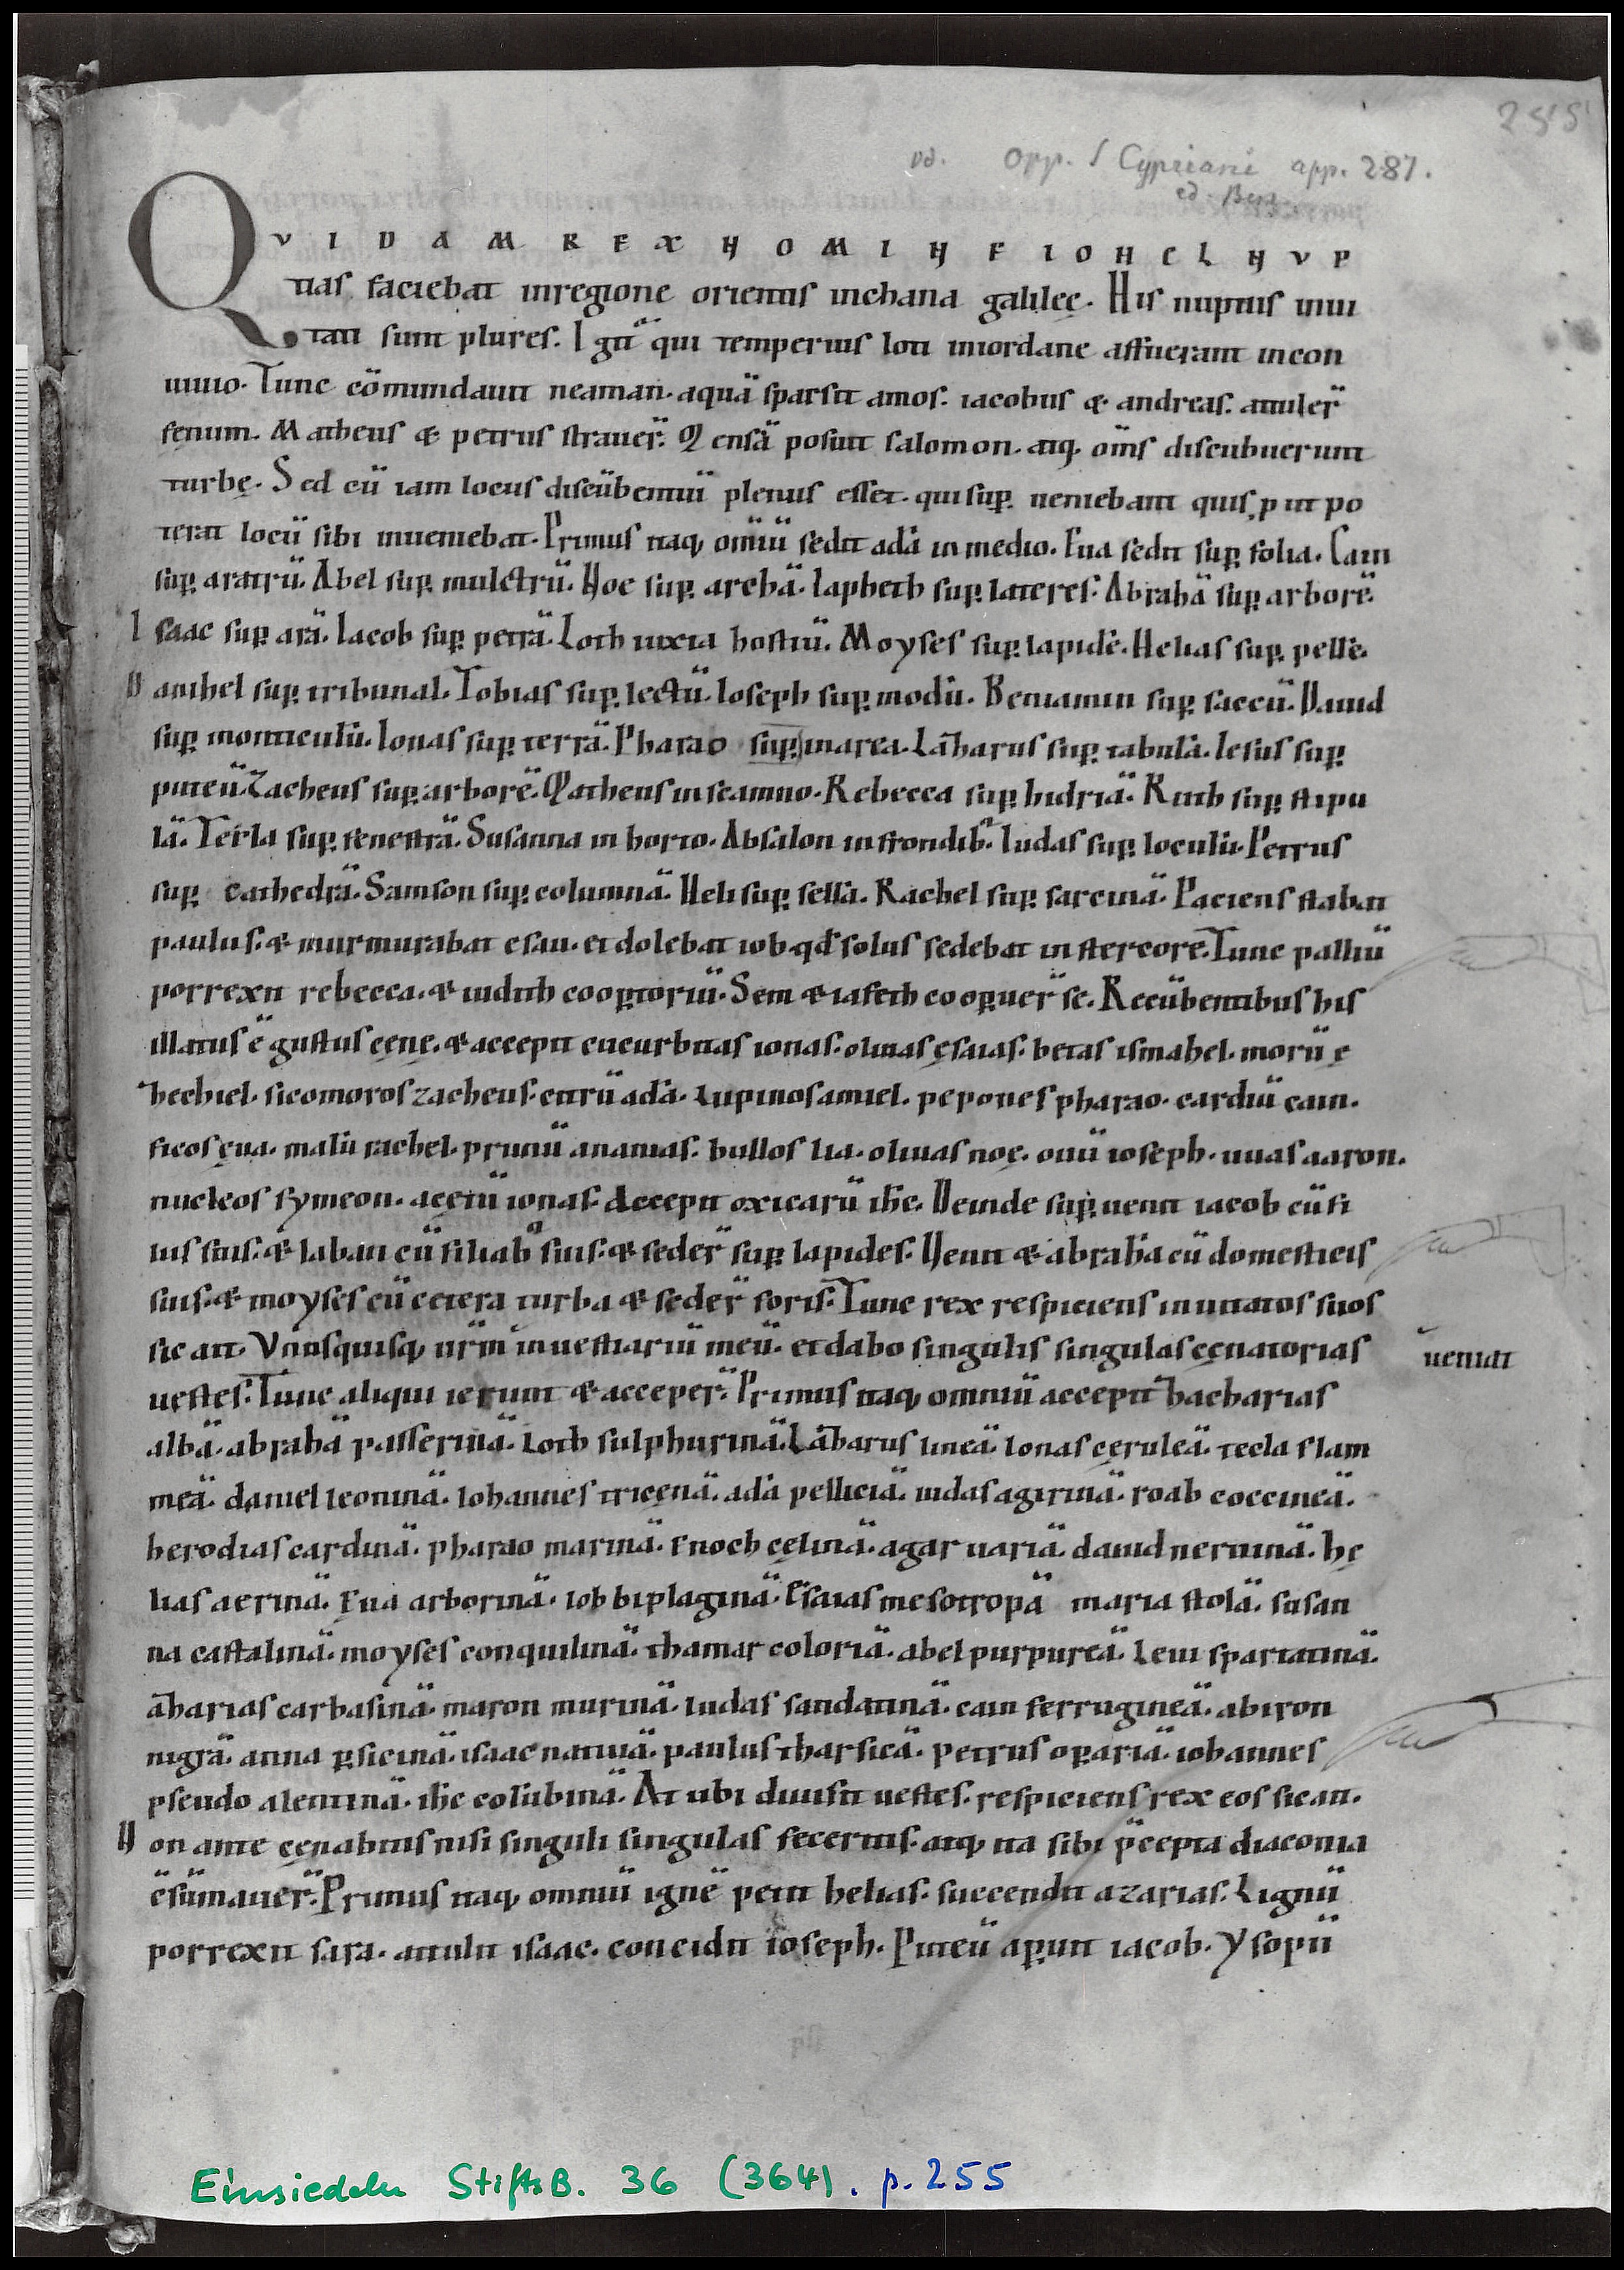 255
vd. Opp. S Cypriani app. 287.
ed. Ben
QVIDAM REX HOMINE IOHEL NVP
tias faciebat inregione orientis inchana galileę. His nuptiis inui
tati sunt plures. Igit̄ qui temperius loti iniordane affuerant incon
uiuio. Tunc cōmundauit neaman. aquā sparsit amos. iacobus & andreas. attuler̄
fenum. Matheus & petrus strauer̄. Mensā posuit salomon. atq; om̄s discubuerunt
turbę. Sed cū iam locus discūbentiū plenus esset. qui suꝑ ueniebant quisꝙ ut po
terat locū sibi inueniebat. Primus itaq; omiū sedit adā in medio. Eua sedit suꝑ folia. Cain
suꝑ aratrū. Abel suꝑ mulctrū. Noe suꝑ archā. Iapheth suꝑ lateres. Abrahā suꝑ arborē.
Isaac suꝑ arā. Iacob suꝑ petrā. Loth iuxta hostiū. Moyses suꝑ lapidē. Helias suꝑ pellē.
Danihel suꝑ tribunal. Tobias suꝑ lectū. Ioseph suꝑ modiū. Beniamin suꝑ saccū. Dauid
suꝑ monticulū. Ionas suꝑ terrā. Pharao suꝑ inarea. Lazharus suꝑ tabulā. Iesus suꝑ
puteū. Zacheus suꝑ arborē. Matheus in scamno. Rebecca suꝑ hidriā. Ruth suꝑ stipu
lā. Tecla suꝑ fenestrā. Susanna in horto. Absalon in frondib;. Iudas suꝑ loculū. Petrus
suꝑ cathedrā. Samson suꝑ columnā. Heli suꝑ sellā. Rachel suꝑ sarcinā. Paciens stabat
paulus. & murmurabat esau. et dolebat iob. qđ solus sedebat in stercore. Tunc palliū
porrexit rebecca. & iudith cooꝑtoriū. Sem & iafeth cooꝑuer̄ se. Recūbentibus his
illatus ē gustus cęnę. & accepit cucurbitas ionas. oliuas ęsaias. betas ismahel. morū ę
zhechiel. sicomoros zacheus. citrū adā. Lupinos amiel. pepones pharao. cardiū cain.
ficos ęua. malū rachel. prunū ananias. bullos lia. oliuas noę. ouū ioseph. uuas aaron.
nucleos symeon. acętū ionas. accepit oxicarū ih̄c. Deinde suꝑ uenit iacob cū fi
liis suis. & laban cū filiab; suis. & seder̄ suꝑ lapides. Uenit & abrahā cū domesticis
suis. & moyses cū cetera turba & seder̄ foris. Tunc rex respiciens inuitatos suos
sic ait. Vnusquisq; ur̄m in uestiariū meū. et dabo singulis singulas cęnatorias
ueniat
uestes. Tunc aliqui ierunt & acceper̄. Primus itaq; omniū accepit zhacharias
albā. abrahā passerinā. Loth sulphurinā. Lazharus lineā. Ionas cęruleā. tecla flam
meā. daniel leoninā. Iohannes tricęnā. adā pelliciā. iudas agirinā. roab coccineā.
herodias cardinā. pharao marinā. Enoch cęlinā. agar uariā. dauid neruinā. hę
lias aerinā. Eua arborinā. iob biplaginā. Esaias mesotropā maria stolā. susan
na castalinā. moyses conquilinā. thamar coloriā. abel purpureā. Leui spartatinā.
azharias carbasinā. maron murinā. Iudas sandatinā. cain ferrugineā. abiron
nigrā. anna ꝑsicinā. isaac natiuā. paulus tharsicā. petrus oꝑariā. iohannes
pseudo alentinā. ih̄c colūbinā. At ubi diuisit uestes. respiciens rex eos sic ait.
Non ante cęnabitis nisi singuli singulas feceritis. atq; ita sibi p̄cepta diaconia
cs̄ūmauer̄. Primus itaq; omniū ignē petit helias. succendit azarias. Lignū
porrexit sara. attulit isaac. concidit ioseph. Puteū aꝑuit iacob. Ysopū
Einsiedeln StiftsB. 36 (364). p. 255